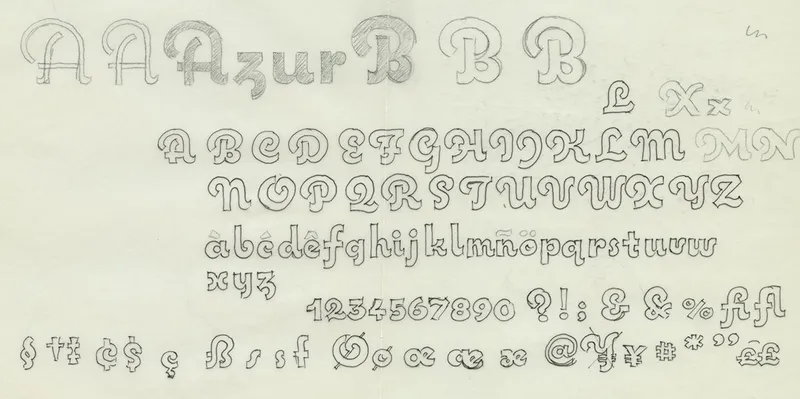 A A Azur B B B
L X x
A B C D E F G H I J K L M M N
N O P Q R S T U V W X Y Z
à b ć d ê f g h i j k l m ñ ö p q r s t u v w
x y z
1 2 3 4 5 6 7 8 9 0 ? ! ; & & % fi fl
§ † ‡ ¢ $ ç ß s s f Ø ø œ æ æ @ ¥ ¥ # * ’ ’ £ £